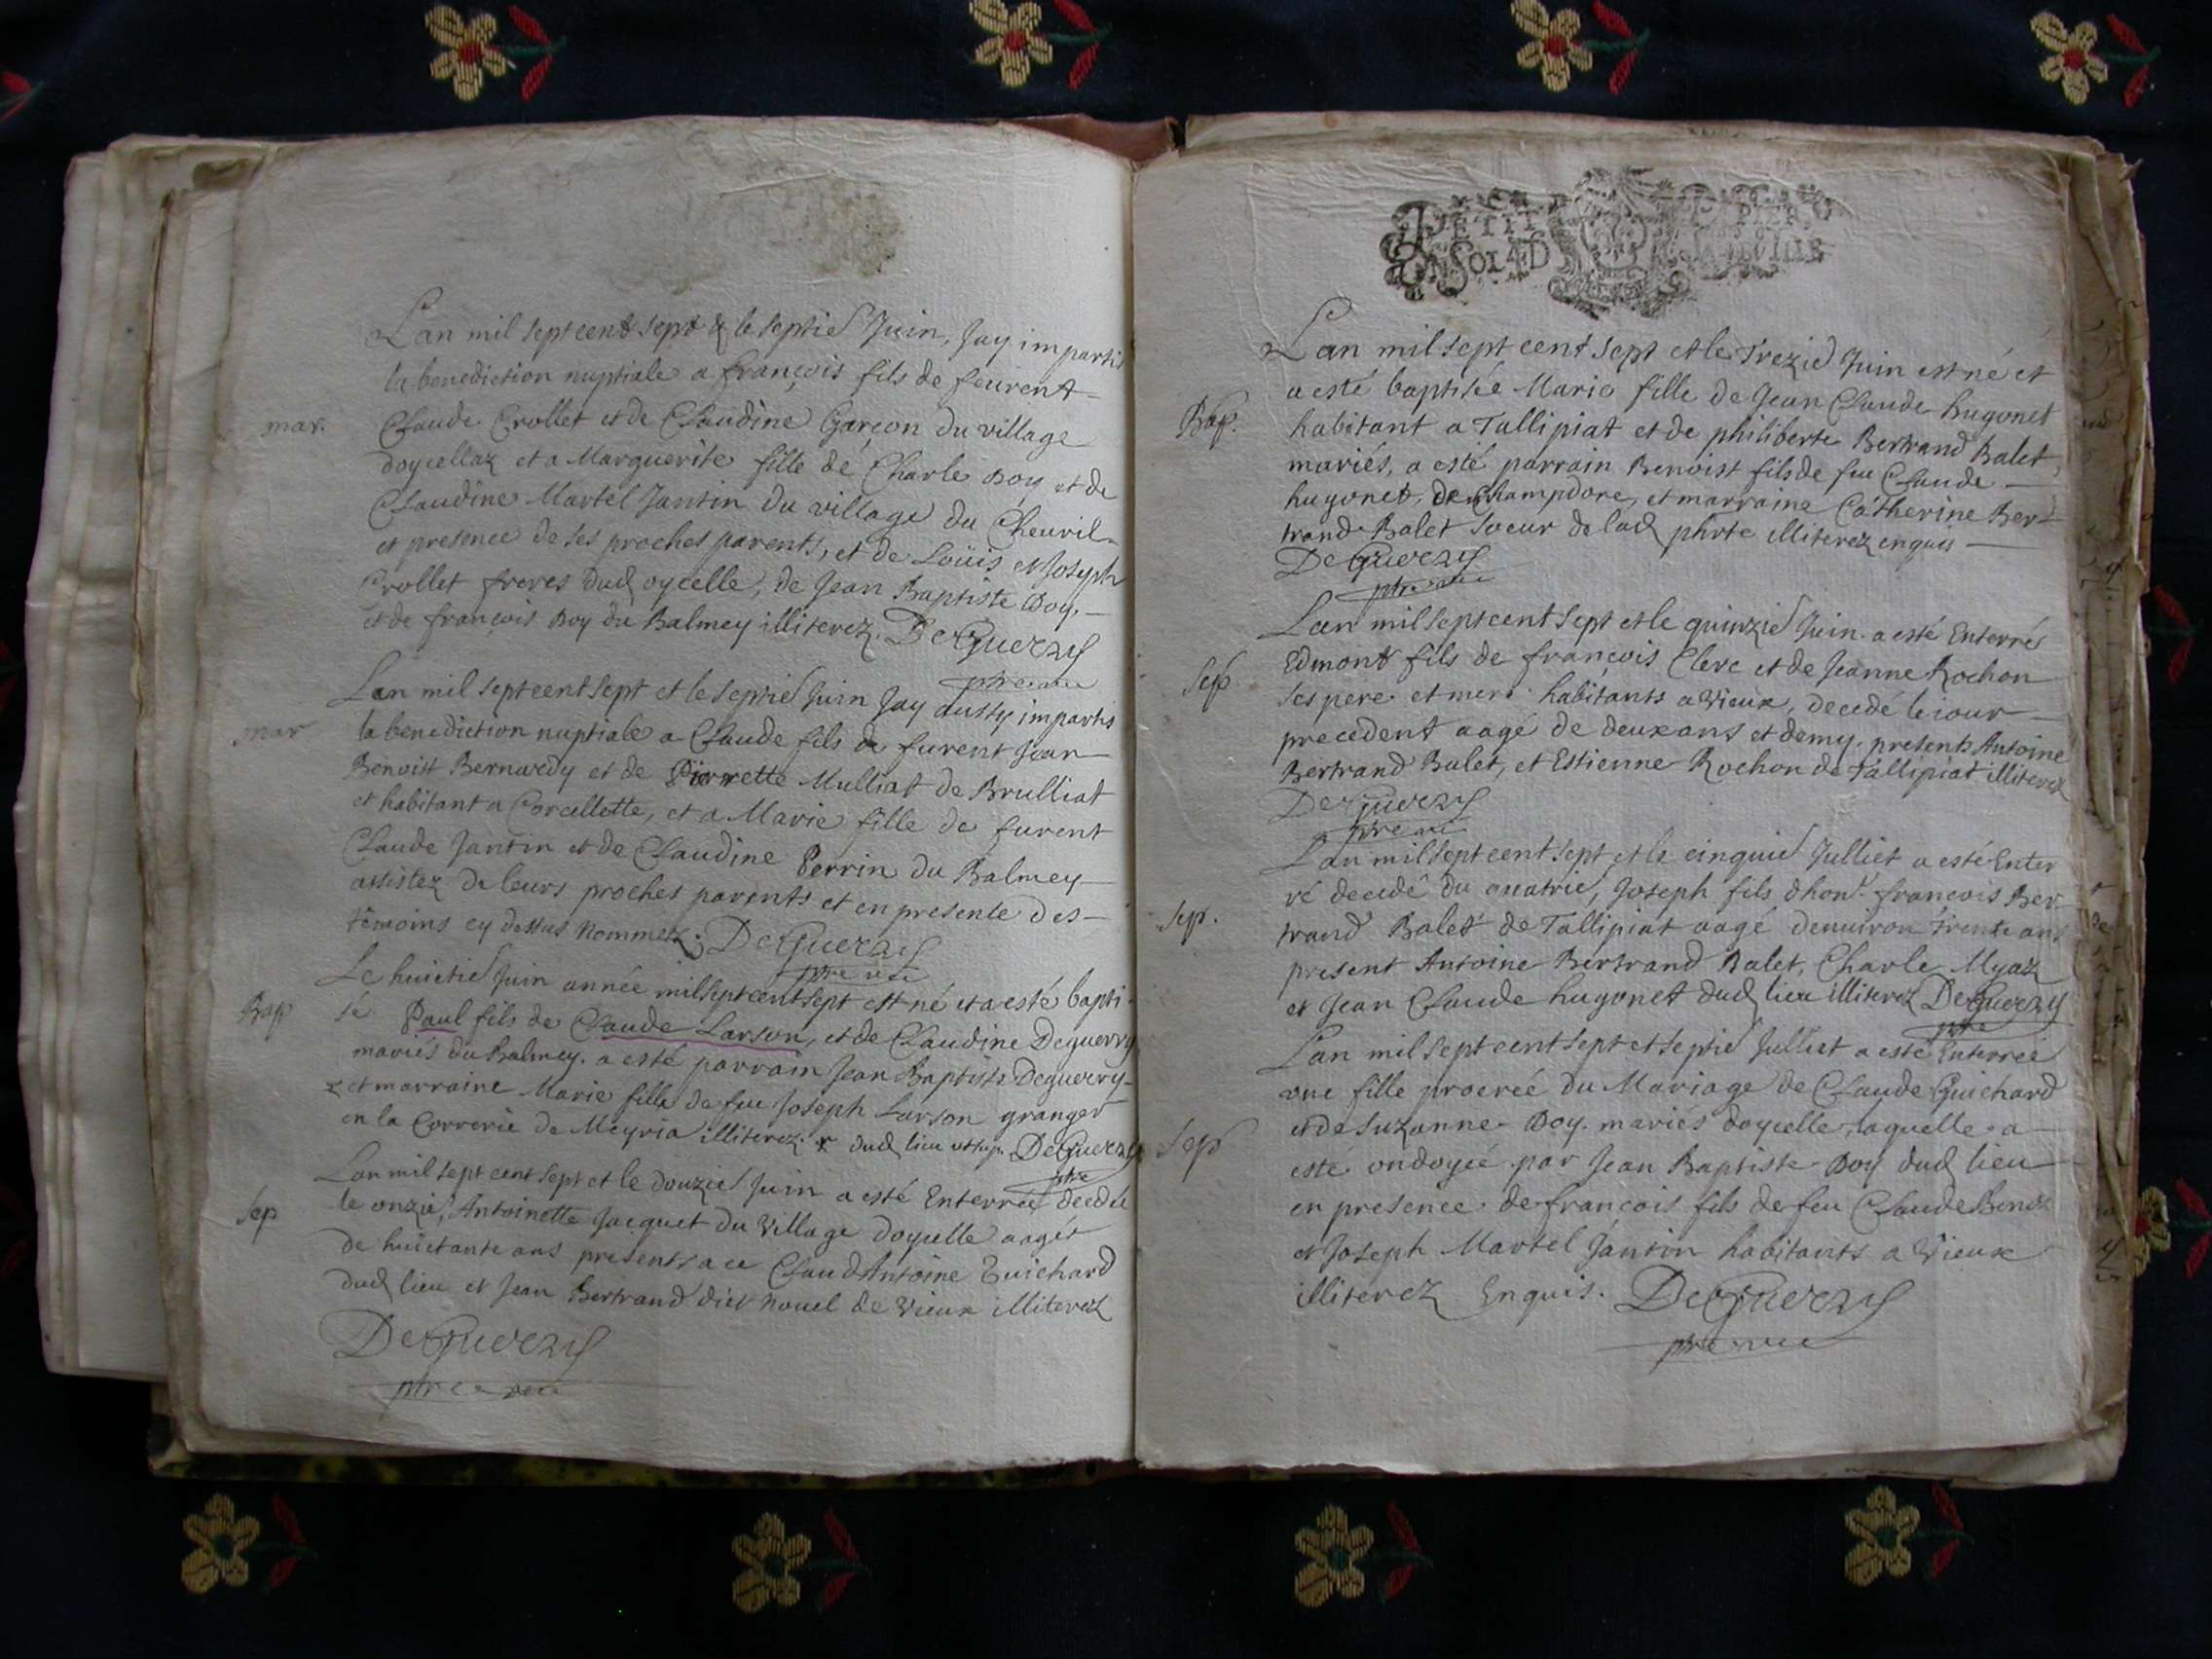 Lan mil sept cent sept & le septie Juin, Jay impartis
la benediction nuptiale a françois fils de feurent
mar.
Claude Crollet et de Claudine Garçon du village
doycellaz et a Marguerite fille de Charle Doy et de
Claudine Martel Jantin du village du Cheuril
et presence de ses proches parents, et de Loüis et Joseph
Crollet freres dud oycelle, de Jean Baptiste Doy.
et de françois Doy du Balmey illiterez. DeGuerry
ptre
Lan mil sept cent sept et le septie Juin Jay aussy impartis
mar
la benediction nuptiale a Claude fils de furent Jean
Benoist Bernardy et de Pierrette Mulliat de Brulliat
et habitant a Corcellette, et a Marie fille de furent
Claude Jantin et de Claudine Perrin du Balmey
assistez de leurs proches parents et en presente des
témoins cy dessus nommez; DeGuerry
ptre
Le huictie Juin année mil sept cent sept est né et a esté bapti
Bap
sé Paul fils de Claude Larson, et de Claudine Deguerry
mariés du Balmey. a esté parrain Jean Baptiste Deguerry
x et marraine Marie fille de feu Joseph Larson granger
en la Correrie de Meyria illiterez. x dud lieu DeGuerry
ptre
Lan mil sept cent sept et le douzie Juin a esté Enterrée decedée
Sep
le onzie, Antoinette Jacquet du village doycelle aagée
de huictante ans presents a ce Claud Antoine Guichard
dud lieu et Jean Bertrand dict nouel de Vieux illiterez
DeGuerry
ptre
PETIT PAPIER
UN SOL 4 D
Lan mil sept cent sept et le Trezie Juin est né et
a esté baptisée Marie fille de Jean Claude hugonet
Bap.
habitant a Tallipiat et de philiberte Bertrand Balet,
mariés, a esté parrain Benoist fils de feu Claude
hugonet, de Champdore, et marraine Catherine Ber-
trand Balet soeur de lad phrte illiterez enquis
DeGuerry
ptre
Lan mil sept cent sept et le quinzie Juin a esté Enterré
Sep
Edmont fils de françois Clerc et de Jeanne Rochon
ses pere et mere habitants a Vieux, decedé le iour
precedent aagé de deux ans et demy. presents Antoine
Bertrand Balet, et Estienne Rochon de Tallipiat illiterez
DeGuerry
ptre
Lan mil sept cent sept et le cinquie Julliet a esté Enter
ré decedé du quatrie, Joseph fils dhont. françois Ber
Sep.
trand Balet de Tallipiat aagé denuiron trente ans
present Antoine Bertrand Balet, Charle Myaz
et Jean Claude hugonet dud lieu illiterez DeGuerry
ptre
Lan mil sept cent sept et septie Julliet a esté Enterrée
une fille procreée du Mariage de Claude Guichard
et de Suzanne Doy. mariés doycelle, laquelle a
Sep
esté ondoyée par Jean Baptiste Doy dud lieu
en presence de françois fils de feu Claude
et Joseph Martel Jantin habitants a Vieux
illiterez Enquis. DeGuerry
ptre